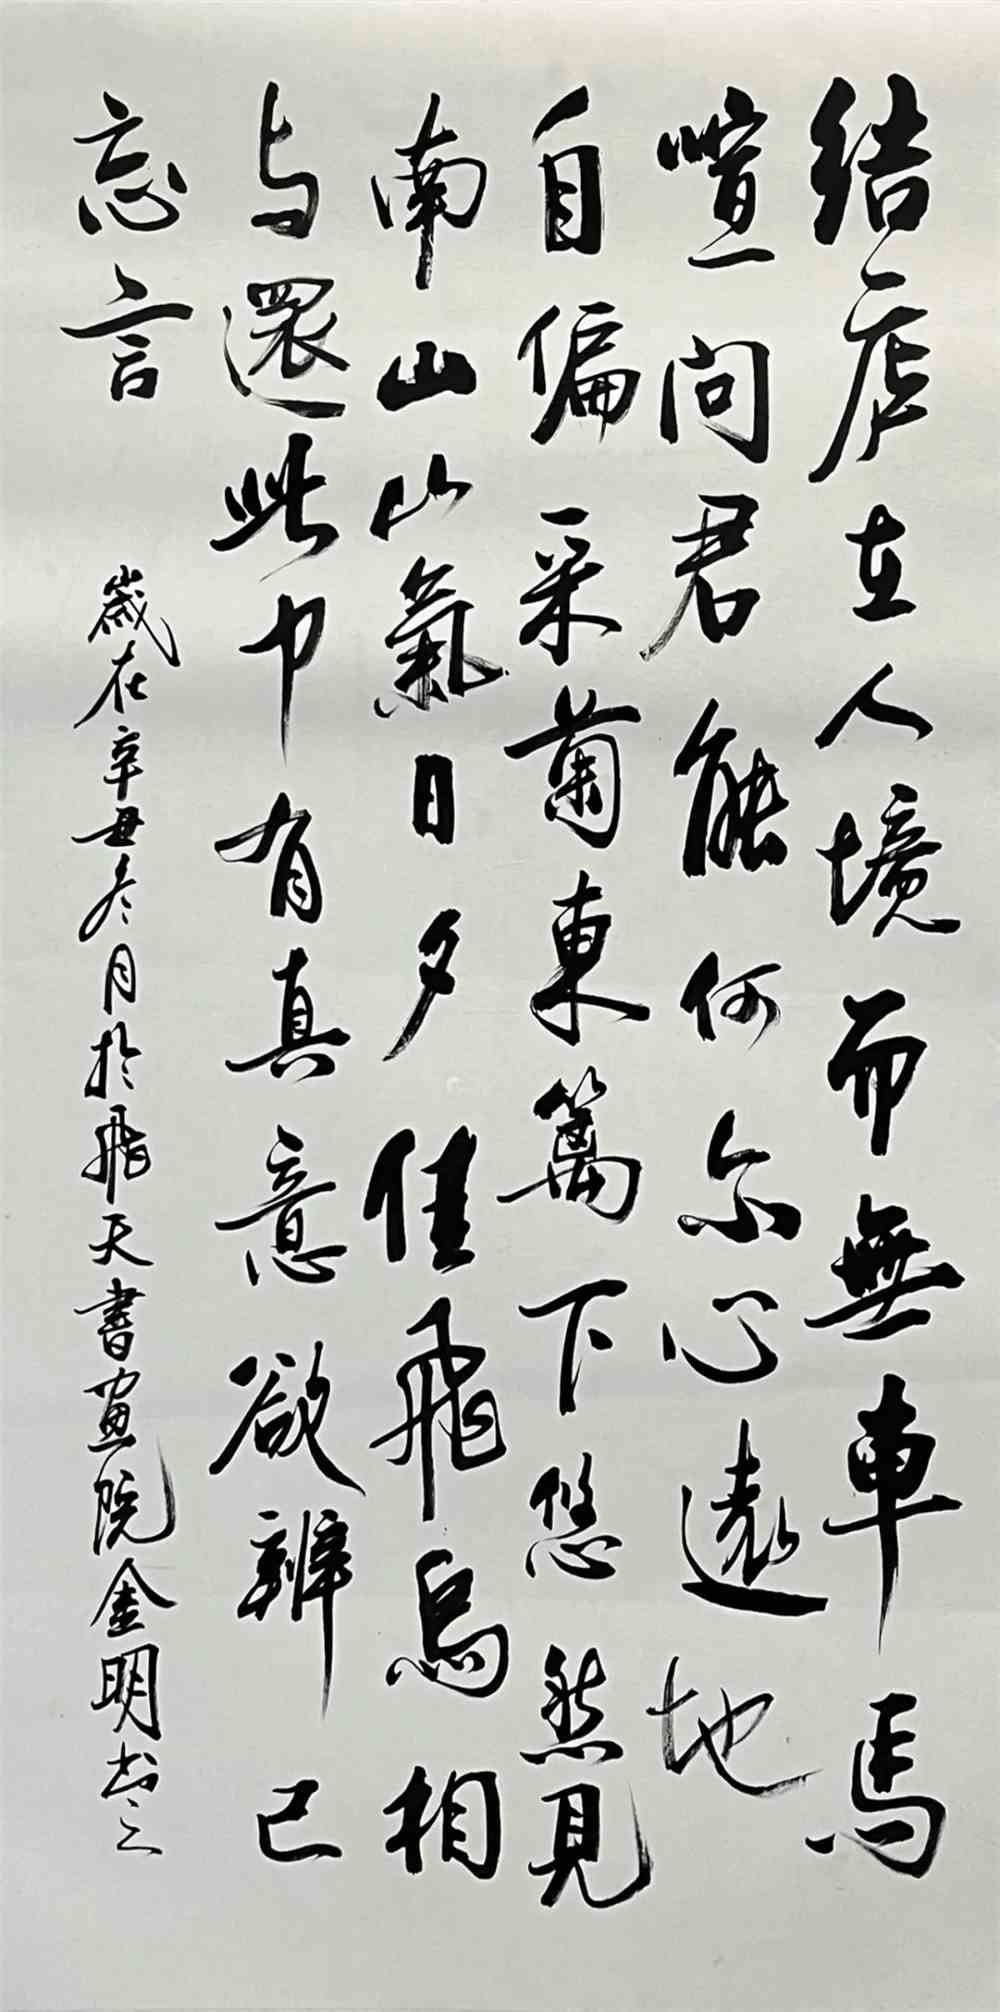 结庐在人境而無車馬
喧问君能何尔心遠地
自偏采菊東篱下悠然見
南山山氣日夕佳飛鳥相
与還此中有真意欲辨已
忘言
歲在辛丑冬月於飛天書画院金明书之